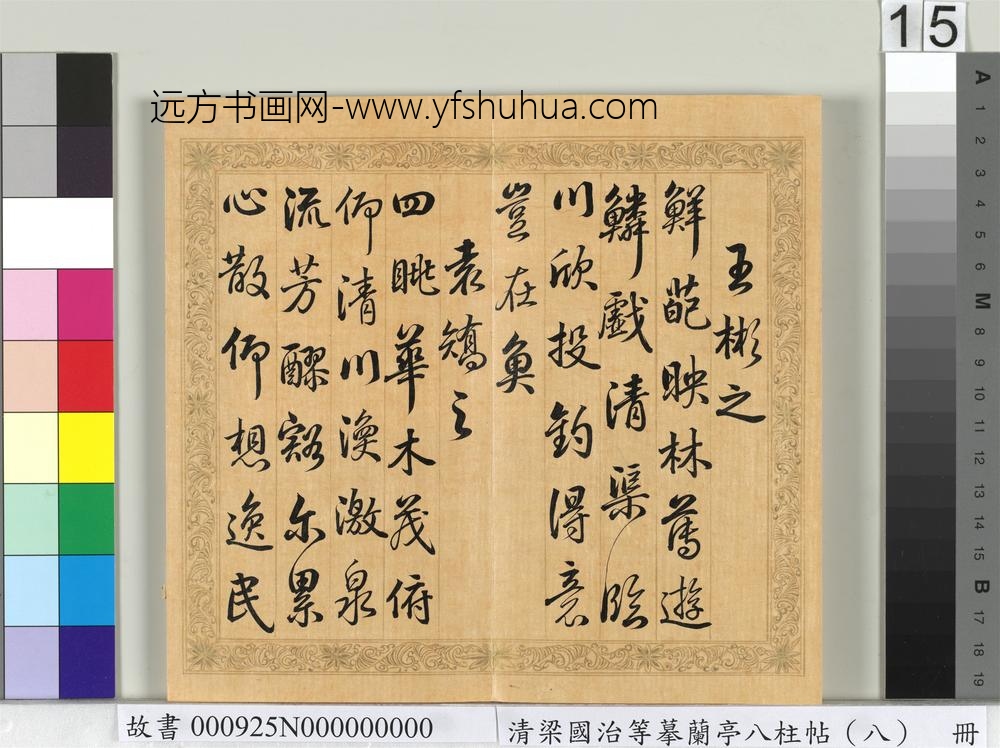 15
远方书画网-www.yfshuhua.com
王彬之
鮮葩映林薄遊
鱗戲清渠臨
川欣投釣得意
豈在魚
袁嶠之
四眺華木茂俯
仰清川渙激泉
流芳醪豁尔累
心散仰想逸民
A
1
2
3
4
5
6
M
8
9
10
11
12
13
14
15
B
17
18
19
故書 000925N000000000
清梁國治等摹蘭亭八柱帖（八） 冊